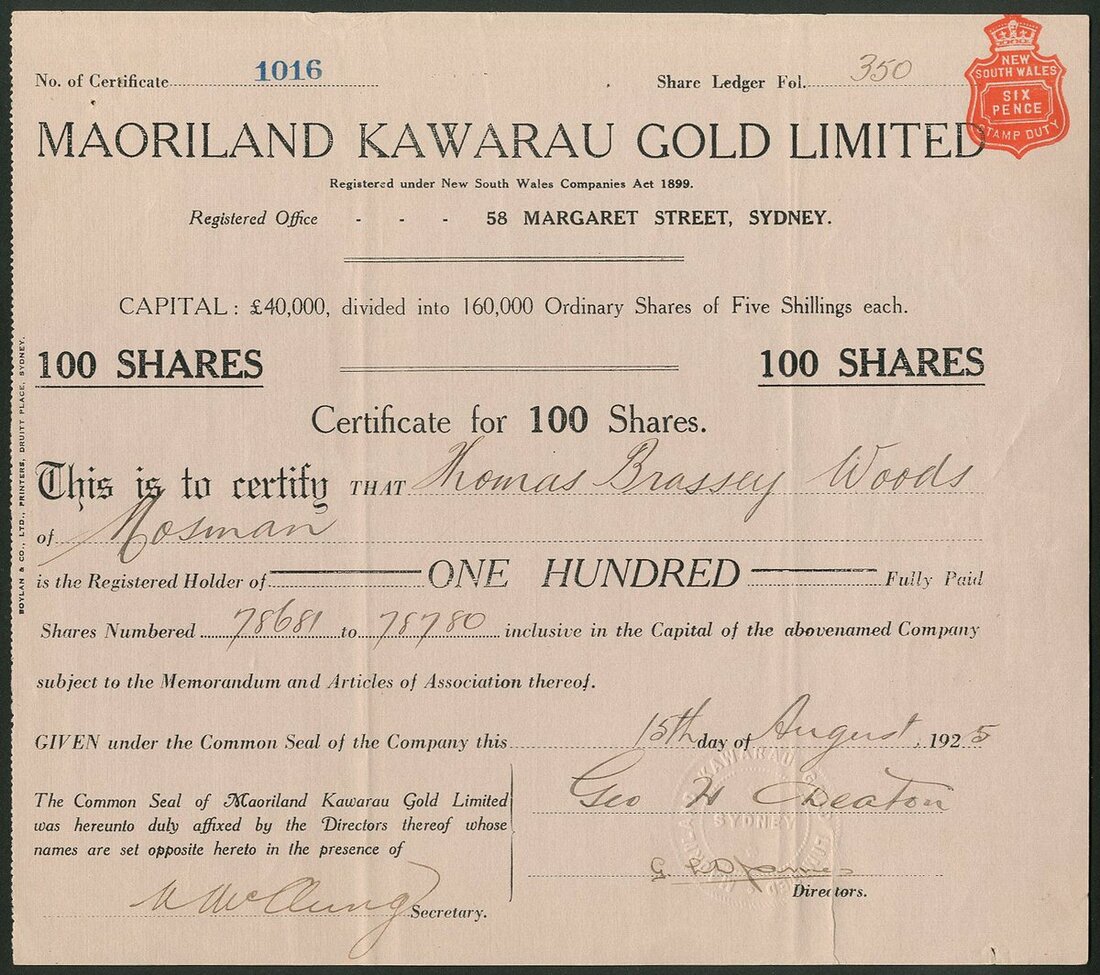 No. of Certificate 1016
Share Ledger Fol. 350
NEW
SOUTH WALES
SIX
PENCE
STAMP DUTY
MAORILAND KAWARAU GOLD LIMITED
Registered under New South Wales Companies Act 1899.
Registered Office - - - 58 MARGARET STREET, SYDNEY.
CAPITAL: £40,000, divided into 160,000 Ordinary Shares of Five Shillings each.
100 SHARES 100 SHARES
Certificate for 100 Shares.
This is to certify THAT Thomas Brassey Woods
of Mosman
is the Registered Holder of ONE HUNDRED Fully Paid
Shares Numbered 78681 to 78780 inclusive in the Capital of the abovenamed Company
subject to the Memorandum and Articles of Association thereof.
GIVEN under the Common Seal of the Company this 15th day of August, 1925
The Common Seal of Maoriland Kawarau Gold Limited
was hereunto duly affixed by the Directors thereof whose
names are set opposite hereto in the presence of
Geo H
SYDNEY
Directors.
Secretary.
BOYLAN & CO., LTD., PRINTERS, DRUITT PLACE, SYDNEY.